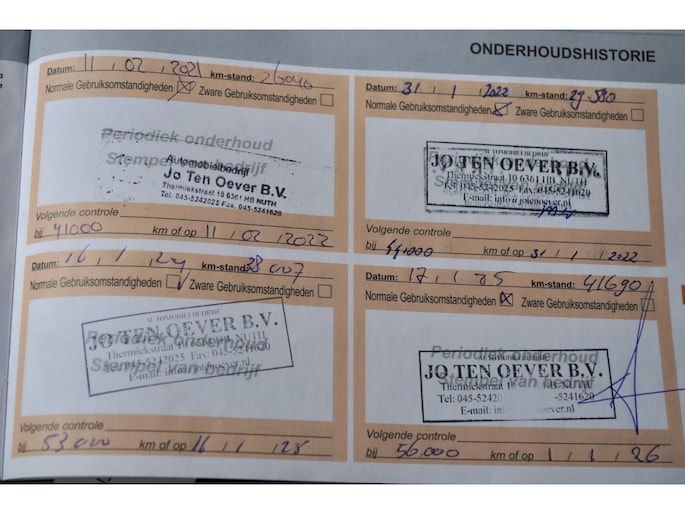 ONDERHOUDSHISTORIE
Datum: 11 / 02 / 2021 km-stand: 26046
Normale Gebruiksomstandigheden Zware Gebruiksomstandigheden
Periodiek onderhoud
Stempel van bedrijf
Automobielbedrijf
Jo Ten Oever B.V.
Thermiekstraat 10 6361 HB NUTH
Tel. 045-5242025 Fax. 045-5241620
Volgende controle
bij 41000 km of op 11 / 02 / 2022
Datum: 31 / 1 / 2022 km-stand: 29.580
Normale Gebruiksomstandigheden Zware Gebruiksomstandigheden
AUTOMOBIELBEDRIJF
JO TEN OEVER B.V.
Thermiekstraat 10 6361 HB NUTH
Tel: 045-5242025 Fax: 045-5241620
E-mail: info@jotenoever.nl
Volgende controle
bij 44000 km of op 31 / 1 / 2022
Datum: 16 / 1 / 24 km-stand: 38007
Normale Gebruiksomstandigheden Zware Gebruiksomstandigheden
AUTOMOBIELBEDRIJF
JO TEN OEVER B.V.
Periodiek Onderhoud
Thermiekstraat 10 6361 HB NUTH
Stempel van bedrijf
Tel: 045-5242025 Fax: 045-5241620
E-mail: info@jotenoever.nl
Volgende controle
bij 53000 km of op 16 / 1 / 25
Datum: 17 / 1 / 25 km-stand: 41690
Normale Gebruiksomstandigheden Zware Gebruiksomstandigheden
Periodiek onderhoud
JO TEN OEVER B.V.
Stempel van bedrijf
Thermiekstraat 1 NUTH
Tel: 045-5242 -5241620
E-mail: in oever.nl
Volgende controle
bij 56.000 km of op 1 / 1 / 26